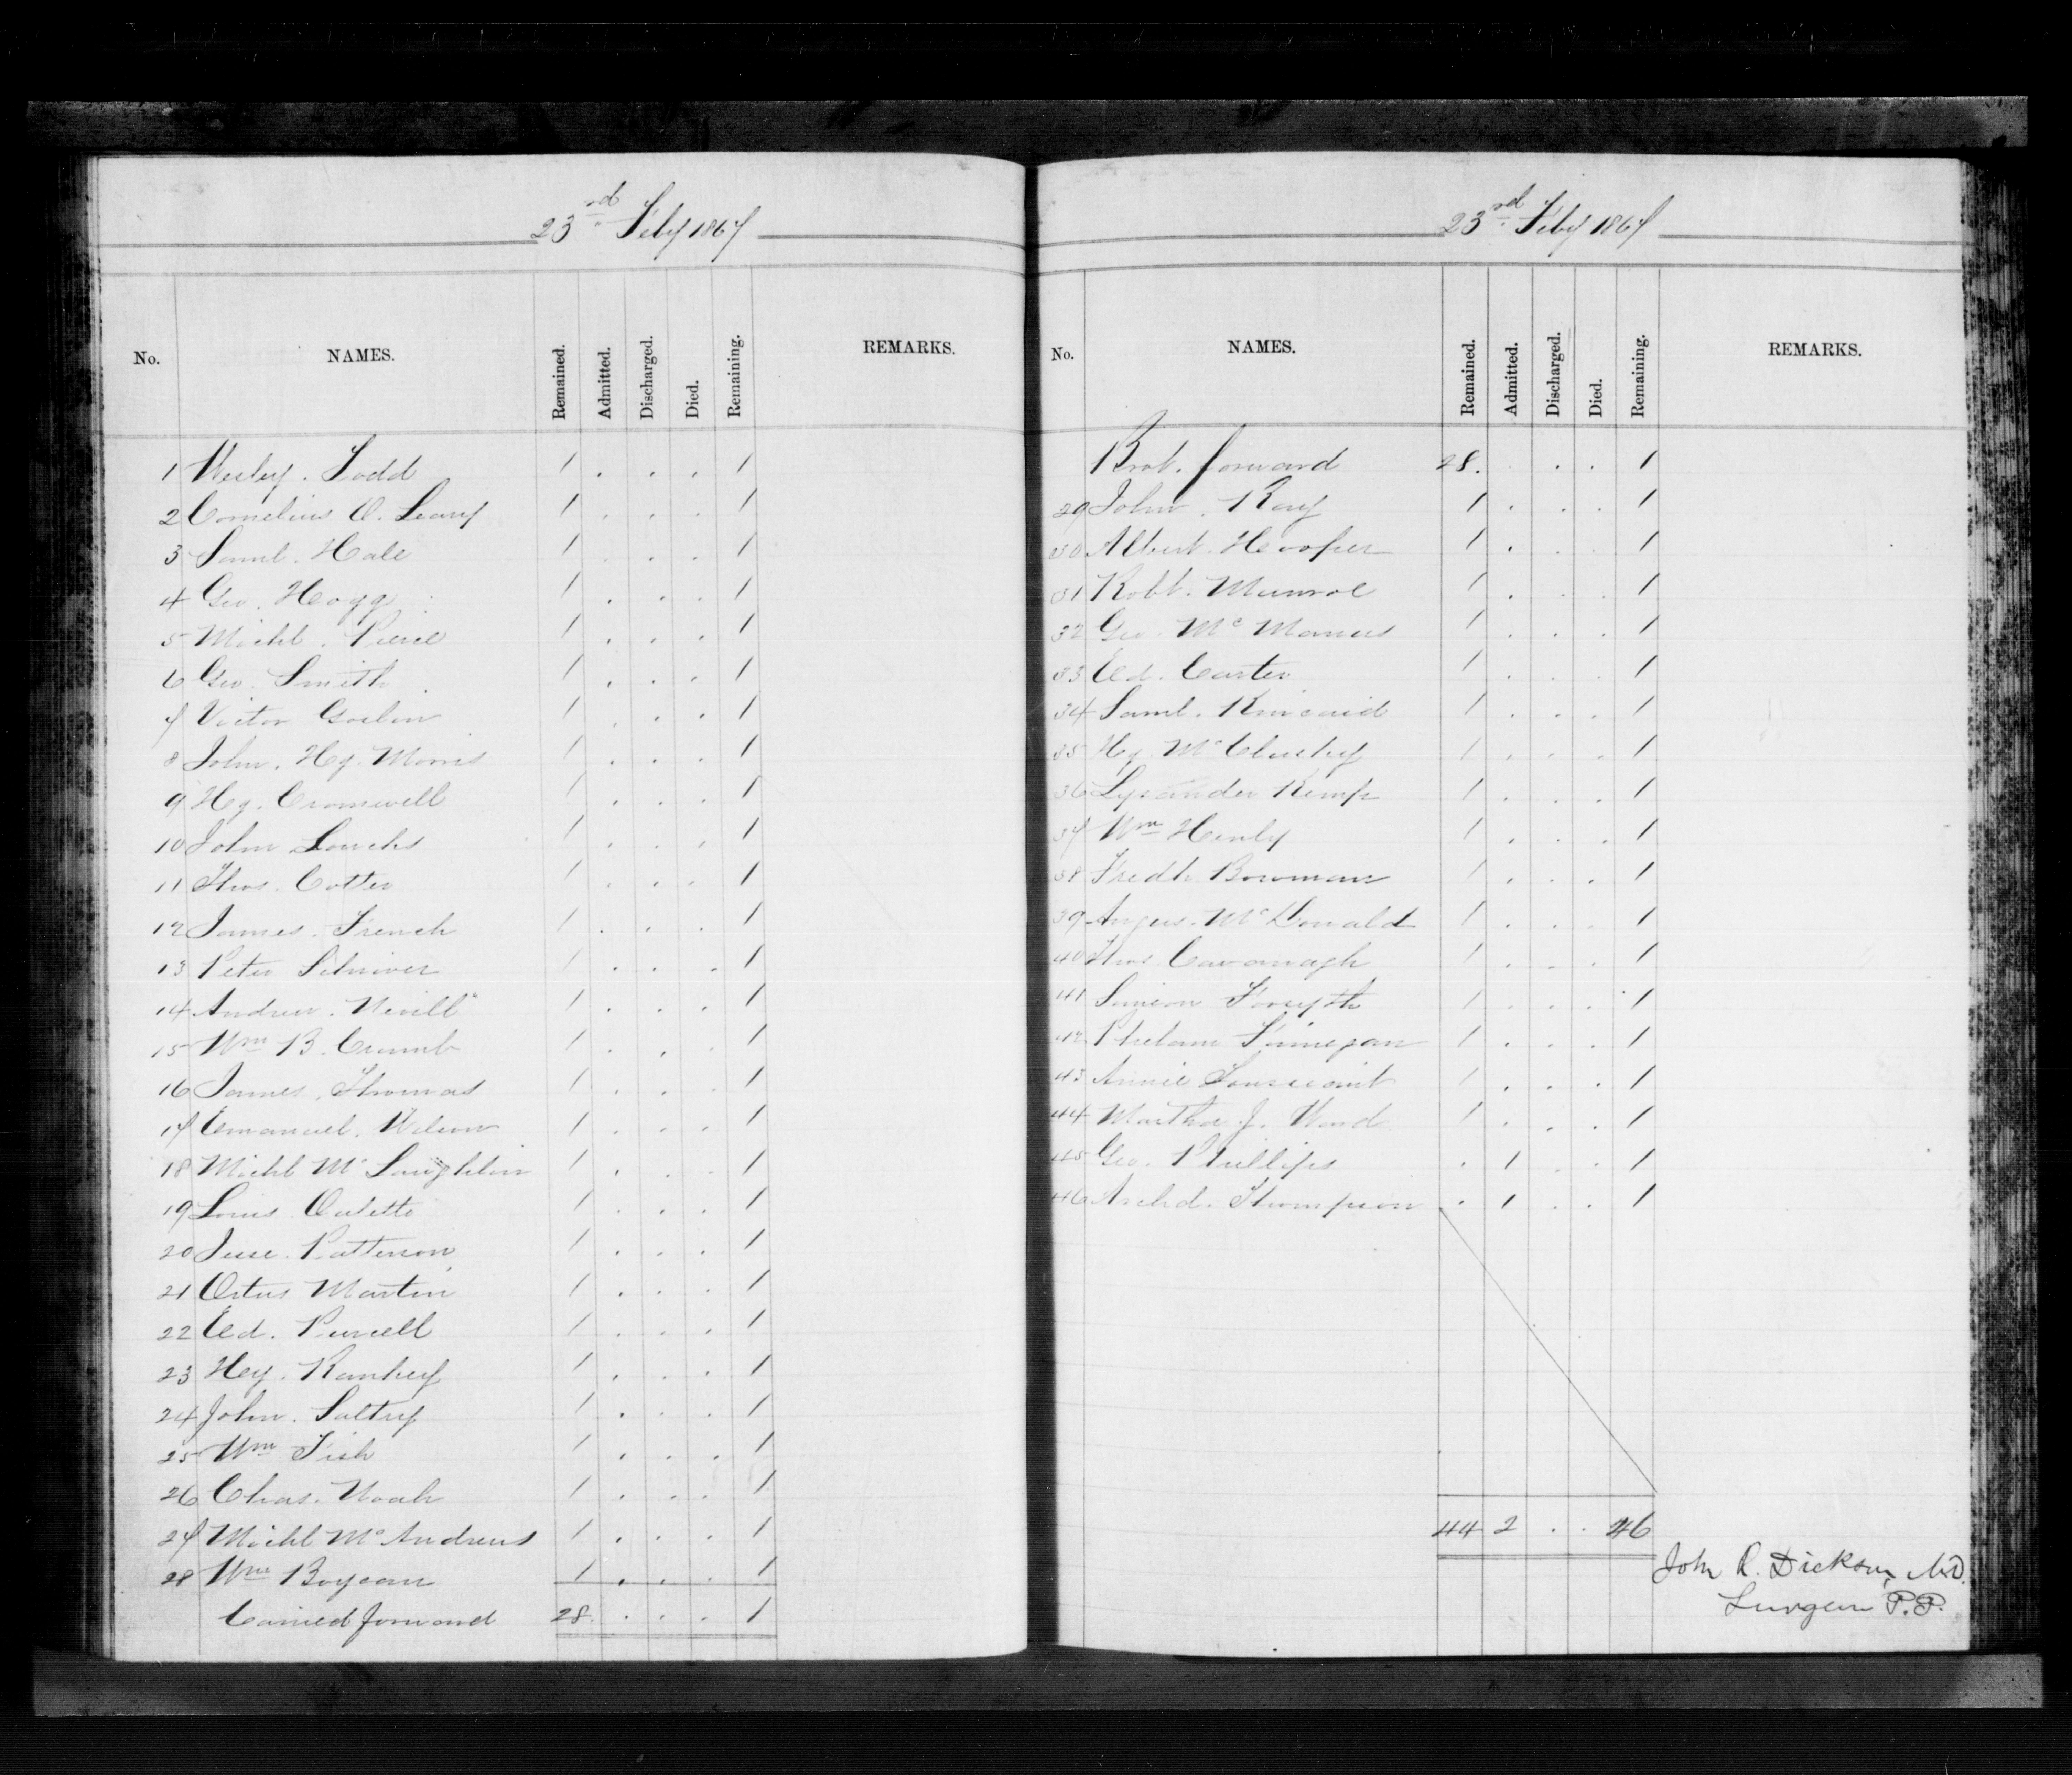 23rd Feby 1867
No. NAMES. Remained. Admitted. Discharged. Died. Remaining. REMARKS.
1 Wesley. Todd 1 . . . 1
2 Cornelius O. Leary 1 . . . 1
3 Saml. Hale 1 . . . 1
4 Geo. Hogg 1 . . . 1
5 Michl. Pierce 1 . . . 1
6 Geo. Smith 1 . . . 1
7 Victor Goslin 1 . . . 1
8 John. Hy. Morris 1 . . . 1
9 Hy. Cromwell 1 . . . 1
10 John Loucks 1 . . . 1
11 Thos. Cotter 1 . . . 1
12 James. French 1 . . . 1
13 Peter Schriver 1 . . . 1
14 Andrew. Nevills 1 . . . 1
15 Wm B. Crumb 1 . . . 1
16 James. Thomas 1 . . . 1
17 Emanuel. Wilson 1 . . . 1
18 Michl Mc Laughlin 1 . . . 1
19 Louis Ouletto 1 . . . 1
20 Jesse. Patterson 1 . . . 1
21 Ortus Martin 1 . . . 1
22 Ed. Purcell 1 . . . 1
23 Hy. Rankey 1 . . . 1
24 John. Saltry 1 . . . 1
25 Wm Fish 1 . . . 1
26 Chas. Noah 1 . . . 1
27 Michl Mc Andrews 1 . . . 1
28 Wm Boyean 1 . . . 1
Carried forward 28. . . . 1
23rd Feby 1867
No. NAMES. Remained. Admitted. Discharged. Died. Remaining. REMARKS.
Brot. forward 28. . . . 1
29 John. Ray 1 . . . 1
30 Albert. Hooper 1 . . . 1
31 Robt. Munroe 1 . . . 1
32 Geo. Mc Manus 1 . . . 1
33 Ed. Carter 1 . . . 1
34 Saml. Kincaid 1 . . . 1
35 Hy. Mc Cluskey 1 . . . 1
36 Lysander Kemp 1 . . . 1
37 Wm Henly 1 . . . 1
38 Fredk Bowman 1 . . . 1
39 Angus. Mc Donald 1 . . . 1
40 Thos. Cavanagh 1 . . . 1
41 Simeon Forsyth 1 . . . 1
42 Phelam Finnegan 1 . . . 1
43 Annie Toussaint 1 . . . 1
44 Martha J. Wood 1 . . . 1
45 Geo. Phillips . 1 . . 1
46 Archd. Thompson . 1 . . 1
44 2 . . 46
John R. Dickson, M.D.
Surgeon P.P.